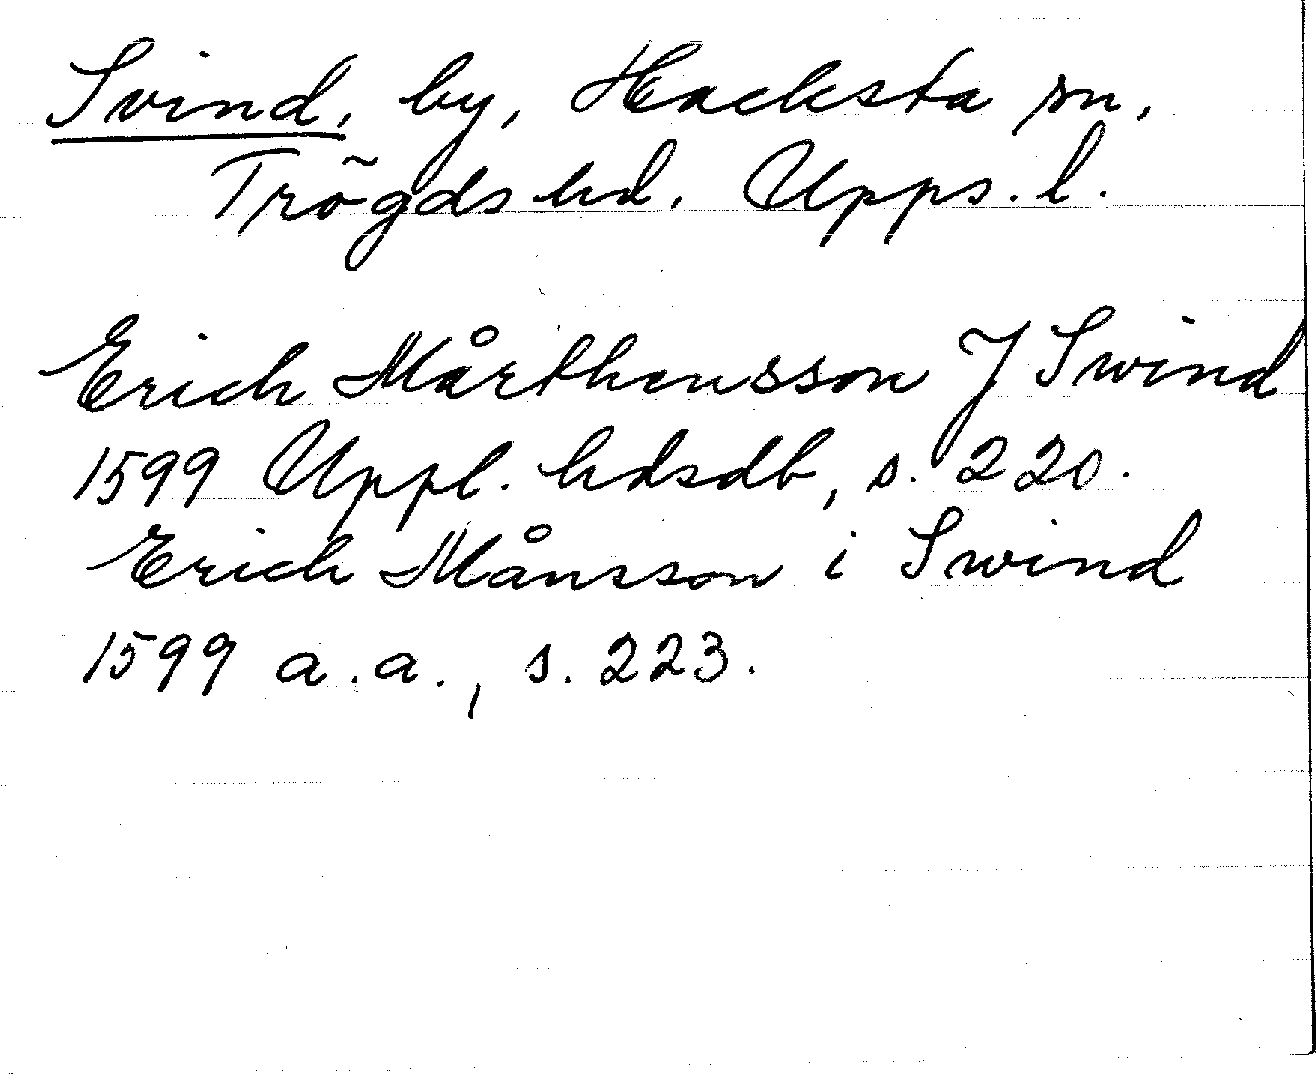 Svind, by, Hacksta sn,
Trögds hd. Upps. l.
Erich Mårthensson J Swind
1599 Uppl. hdsdb, s. 220.
Erich Månsson i Swind
1599 a.a., s. 223.